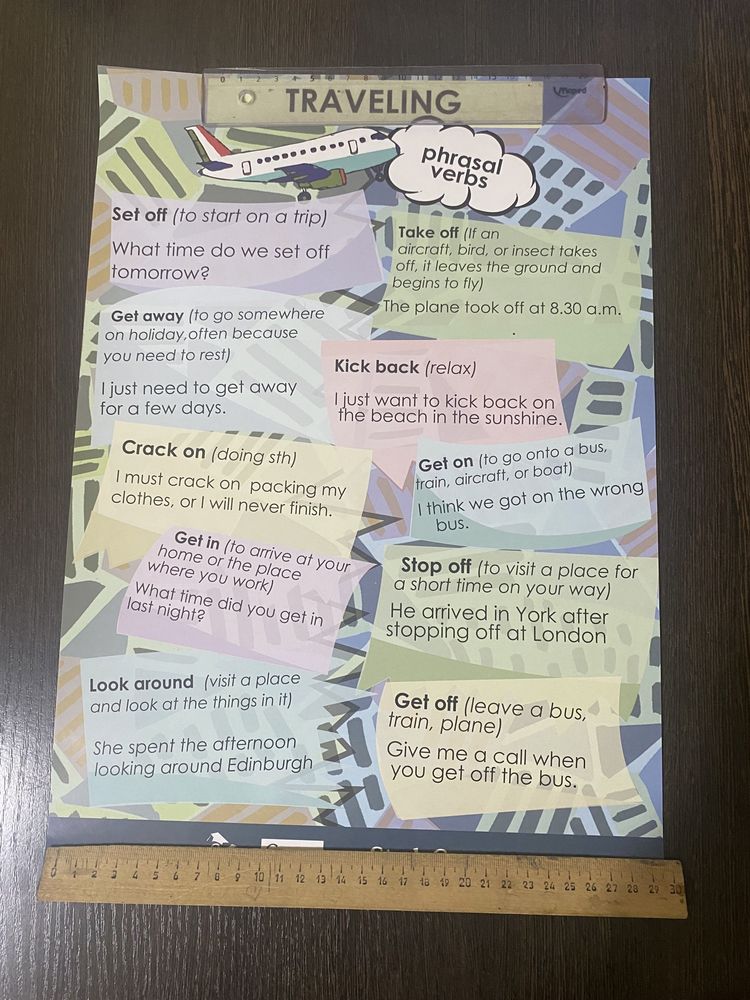 0 1 2 3 4 5 6 7 8 9 10 11 12 13 14 15
Maped
TRAVELING
phrasal
verbs
Set off (to start on a trip)
What time do we set off
tomorrow?
Take off (If an
aircraft, bird, or insect takes
off, it leaves the ground and
begins to fly)
The plane took off at 8.30 a.m.
Get away (to go somewhere
on holiday,often because
you need to rest)
I just need to get away
for a few days.
Kick back (relax)
I just want to kick back on
the beach in the sunshine.
Crack on (doing sth)
I must crack on packing my
clothes, or I will never finish.
Get on (to go onto a bus,
train, aircraft, or boat)
I think we got on the wrong
bus.
Get in (to arrive at your
home or the place
where you work)
What time did you get in
last night?
Stop off (to visit a place for
a short time on your way)
He arrived in York after
stopping off at London
Look around (visit a place
and look at the things in it)
She spent the afternoon
looking around Edinburgh
Get off (leave a bus,
train, plane)
Give me a call when
you get off the bus.
0 1 2 3 4 5 6 7 8 9 10 11 12 13 14 15 16 17 18 19 20 21 22 23 24 25 26 27 28 29 30